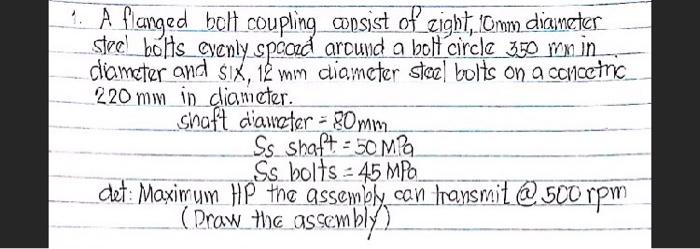 1. A flanged bolt coupling consist of eight, 10mm diameter
steel bolts evenly spaced around a bolt circle 350 mm in
diameter and six, 12 mm diameter steel bolts on a concetric
220 mm in diameter.
shaft diameter = 80mm
Ss shaft = 50 MPa
Ss bolts = 45 MPa
det: Maximum HP the assembly can transmit @ 500 rpm
(Draw the assembly)